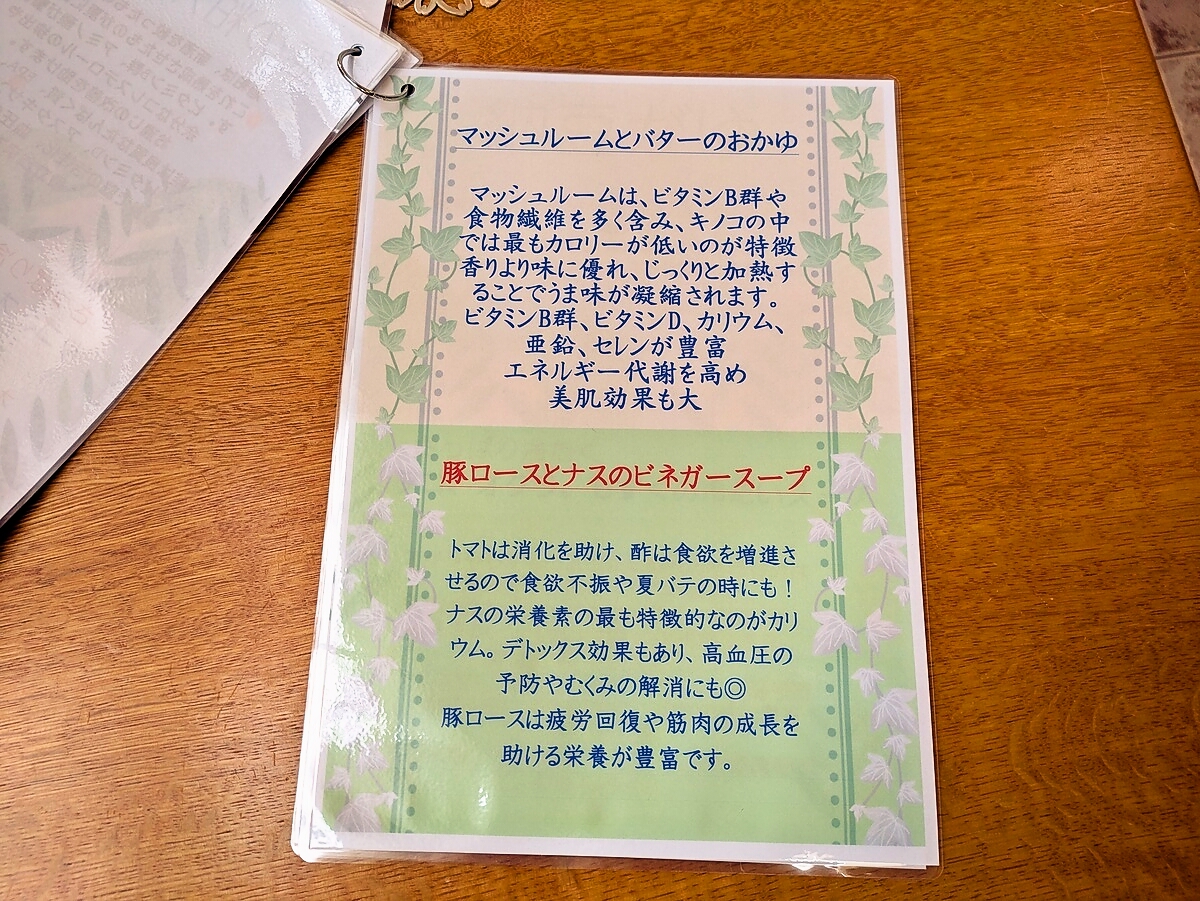 マッシュルームとバターのおかゆ
マッシュルームは、ビタミンB群や
食物繊維を多く含み、キノコの中
では最もカロリーが低いのが特徴
香りより味に優れ、じっくりと加熱す
ることでうま味が凝縮されます。
ビタミンB群、ビタミンD、カリウム、
亜鉛、セレンが豊富
エネルギー代謝を高め
美肌効果も大
豚ロースとナスのビネガースープ
トマトは消化を助け、酢は食欲を増進さ
せるので食欲不振や夏バテの時にも！
ナスの栄養素の最も特徴的なのがカリ
ウム。デトックス効果もあり、高血圧の
予防やむくみの解消にも◎
豚ロースは疲労回復や筋肉の成長を
助ける栄養が豊富です。